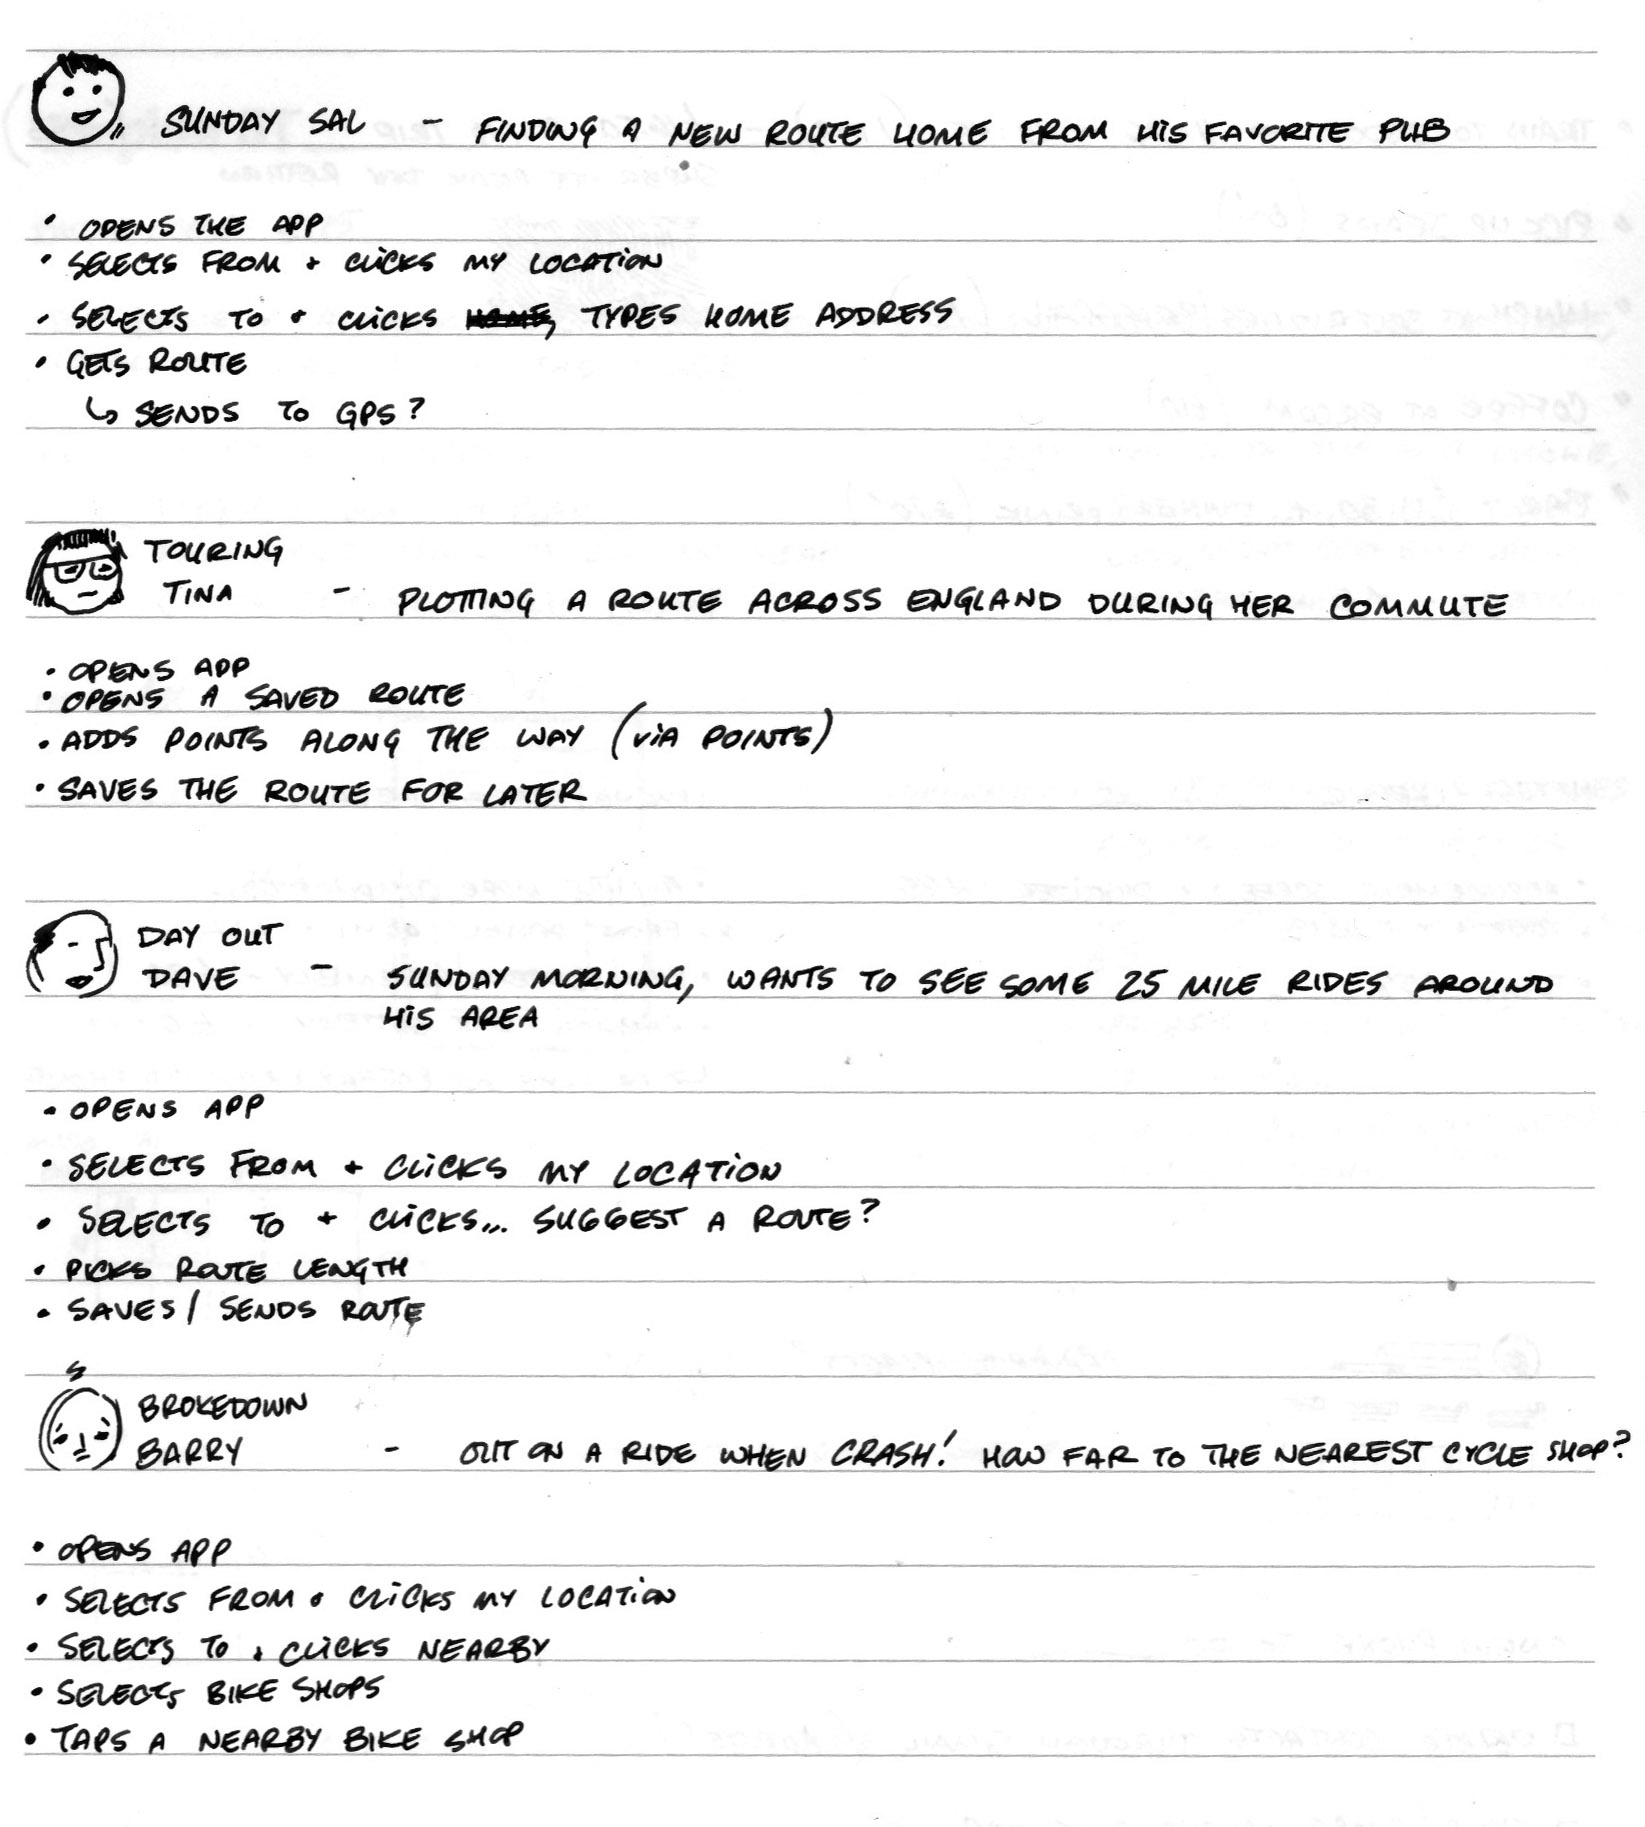 SUNDAY SAL - FINDING A NEW ROUTE HOME FROM HIS FAVORITE PUB
• OPENS THE APP
• SELECTS FROM + CLICKS MY LOCATION
• SELECTS TO + CLICKS HOME, TYPES HOME ADDRESS
• GETS ROUTE
↳ SENDS TO GPS?
TOURING
TINA - PLOTTING A ROUTE ACROSS ENGLAND DURING HER COMMUTE
• OPENS APP
• OPENS A SAVED ROUTE
• ADDS POINTS ALONG THE WAY (VIA POINTS)
• SAVES THE ROUTE FOR LATER
DAY OUT
DAVE - SUNDAY MORNING, WANTS TO SEE SOME 25 MILE RIDES AROUND
HIS AREA
• OPENS APP
• SELECTS FROM + CLICKS MY LOCATION
• SELECTS TO + CLICKS... SUGGEST A ROUTE?
• PICKS ROUTE LENGTH
• SAVES/ SENDS ROUTE
BROKEDOWN
BARRY - OUT ON A RIDE WHEN CRASH! HOW FAR TO THE NEAREST CYCLE SHOP?
• OPENS APP
• SELECTS FROM + CLICKS MY LOCATION
• SELECTS TO + CLICKS NEARBY
• SELECTS BIKE SHOPS
• TAPS A NEARBY BIKE SHOP